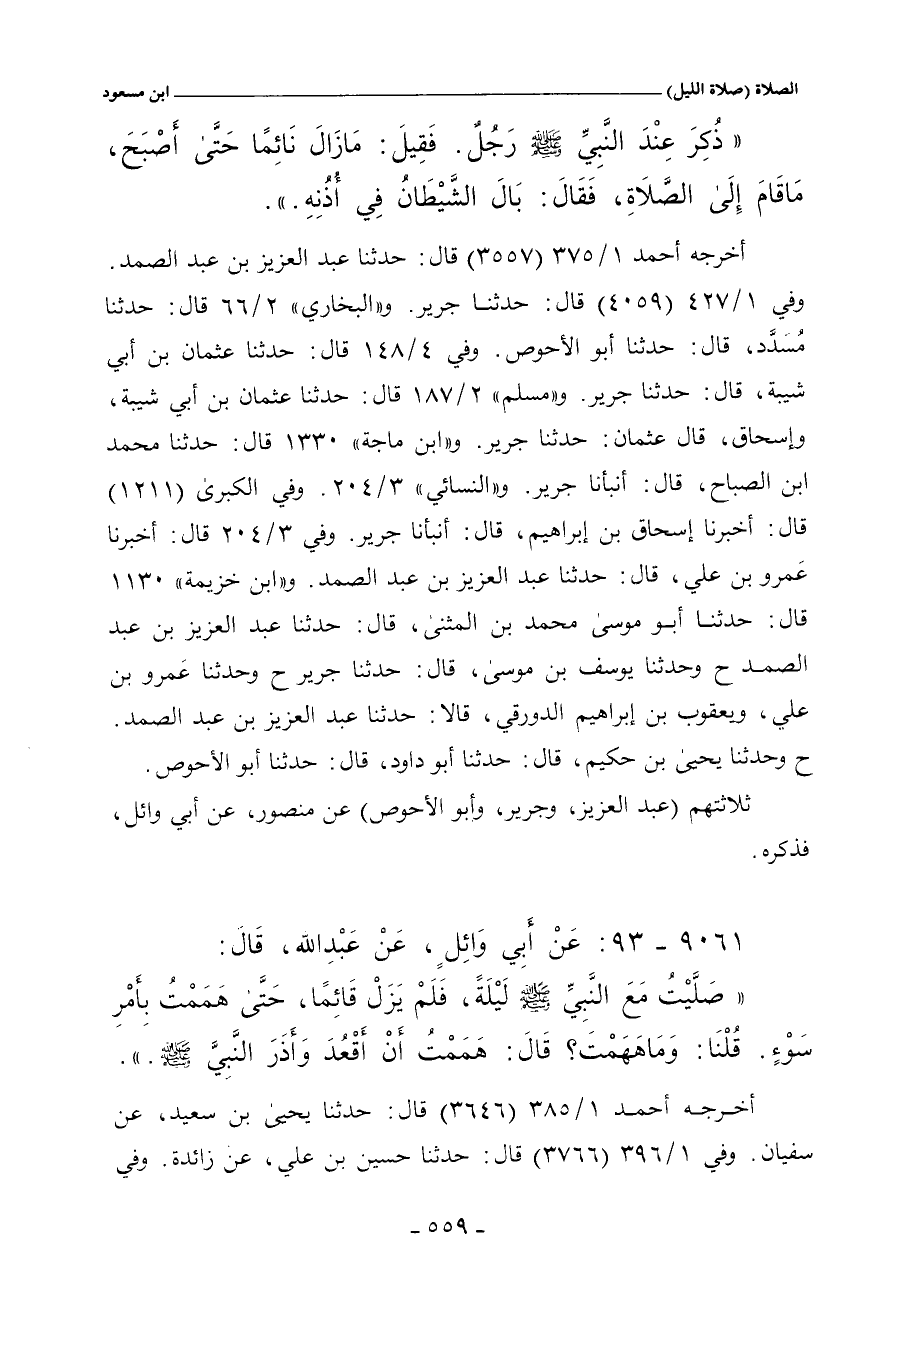 الصلاة (صلاة الليل) ــــــــــــــــــــ ابن مسعود
« ذُكِرَ عِنْدَ النَّبِيِّ ﷺ رَجُلٌ. فَقِيلَ: مَازَالَ نَائِمًا حَتَّىٰ أَصْبَحَ،
مَاقَامَ إِلَىٰ الصَّلَاةِ، فَقَالَ: بَالَ الشَّيْطَانُ فِي أُذُنِهِ.».
أخرجه أحمد ١/٣٧٥ (٣٥٥٧) قال: حدثنا عبد العزيز بن عبد الصمد.
وفي ١/٤٢٧ (٤٠٥٩) قال: حدثنا جرير. و«البخاري» ٢/٦٦ قال: حدثنا
مُسَدَّد، قال: حدثنا أبو الأحوص. وفي ٤/١٤٨ قال: حدثنا عثمان بن أبي
شيبة، قال: حدثنا جرير. و«مسلم» ٢/١٨٧ قال: حدثنا عثمان بن أبي شيبة،
وإسحاق، قال عثمان: حدثنا جرير. و«ابن ماجة» ١٣٣٠ قال: حدثنا محمد
ابن الصباح، قال: أنبأنا جرير. و«النسائي» ٣/٢٠٤. وفي الكبرىٰ (١٢١١)
قال: أخبرنا إسحاق بن إبراهيم، قال: أنبأنا جرير. وفي ٣/٢٠٤ قال: أخبرنا
عَمرو بن علي، قال: حدثنا عبد العزيز بن عبد الصمد. و«ابن خزيمة» ١١٣٠
قال: حدثنا أبو موسىٰ محمد بن المثنىٰ، قال: حدثنا عبد العزيز بن عبد
الصمد ح وحدثنا يوسف بن موسىٰ، قال: حدثنا جرير ح وحدثنا عَمرو بن
علي، ويعقوب بن إبراهيم الدورقي، قالا: حدثنا عبد العزيز بن عبد الصمد.
ح وحدثنا يحيىٰ بن حكيم، قال: حدثنا أبو داود، قال: حدثنا أبو الأحوص.
ثلاثتهم (عبد العزيز، وجرير، وأبو الأحوص) عن منصور، عن أبي وائل،
فذكره.
٩٠٦١ - ٩٣: عَنْ أَبِي وَائِلٍ، عَنْ عَبْدِالله، قَالَ:
« صَلَّيْتُ مَعَ النَّبِيِّ ﷺ لَيْلَةً، فَلَمْ يَزَلْ قَائِمًا، حَتَّىٰ هَمَمْتُ بِأَمْرِ
سَوْءٍ. قُلْنَا: وَمَاهَهَمْتَ؟ قَالَ: هَمَمْتُ أَنْ أَقْعُدَ وَأَذَرَ النَّبِيَّ ﷺ.».
أخرجه أحمد ١/٣٨٥ (٣٦٤٦) قال: حدثنا يحيىٰ بن سعيد، عن
سفيان. وفي ١/٣٩٦ (٣٧٦٦) قال: حدثنا حسين بن علي، عن زائدة. وفي
- ٥٥٩ -